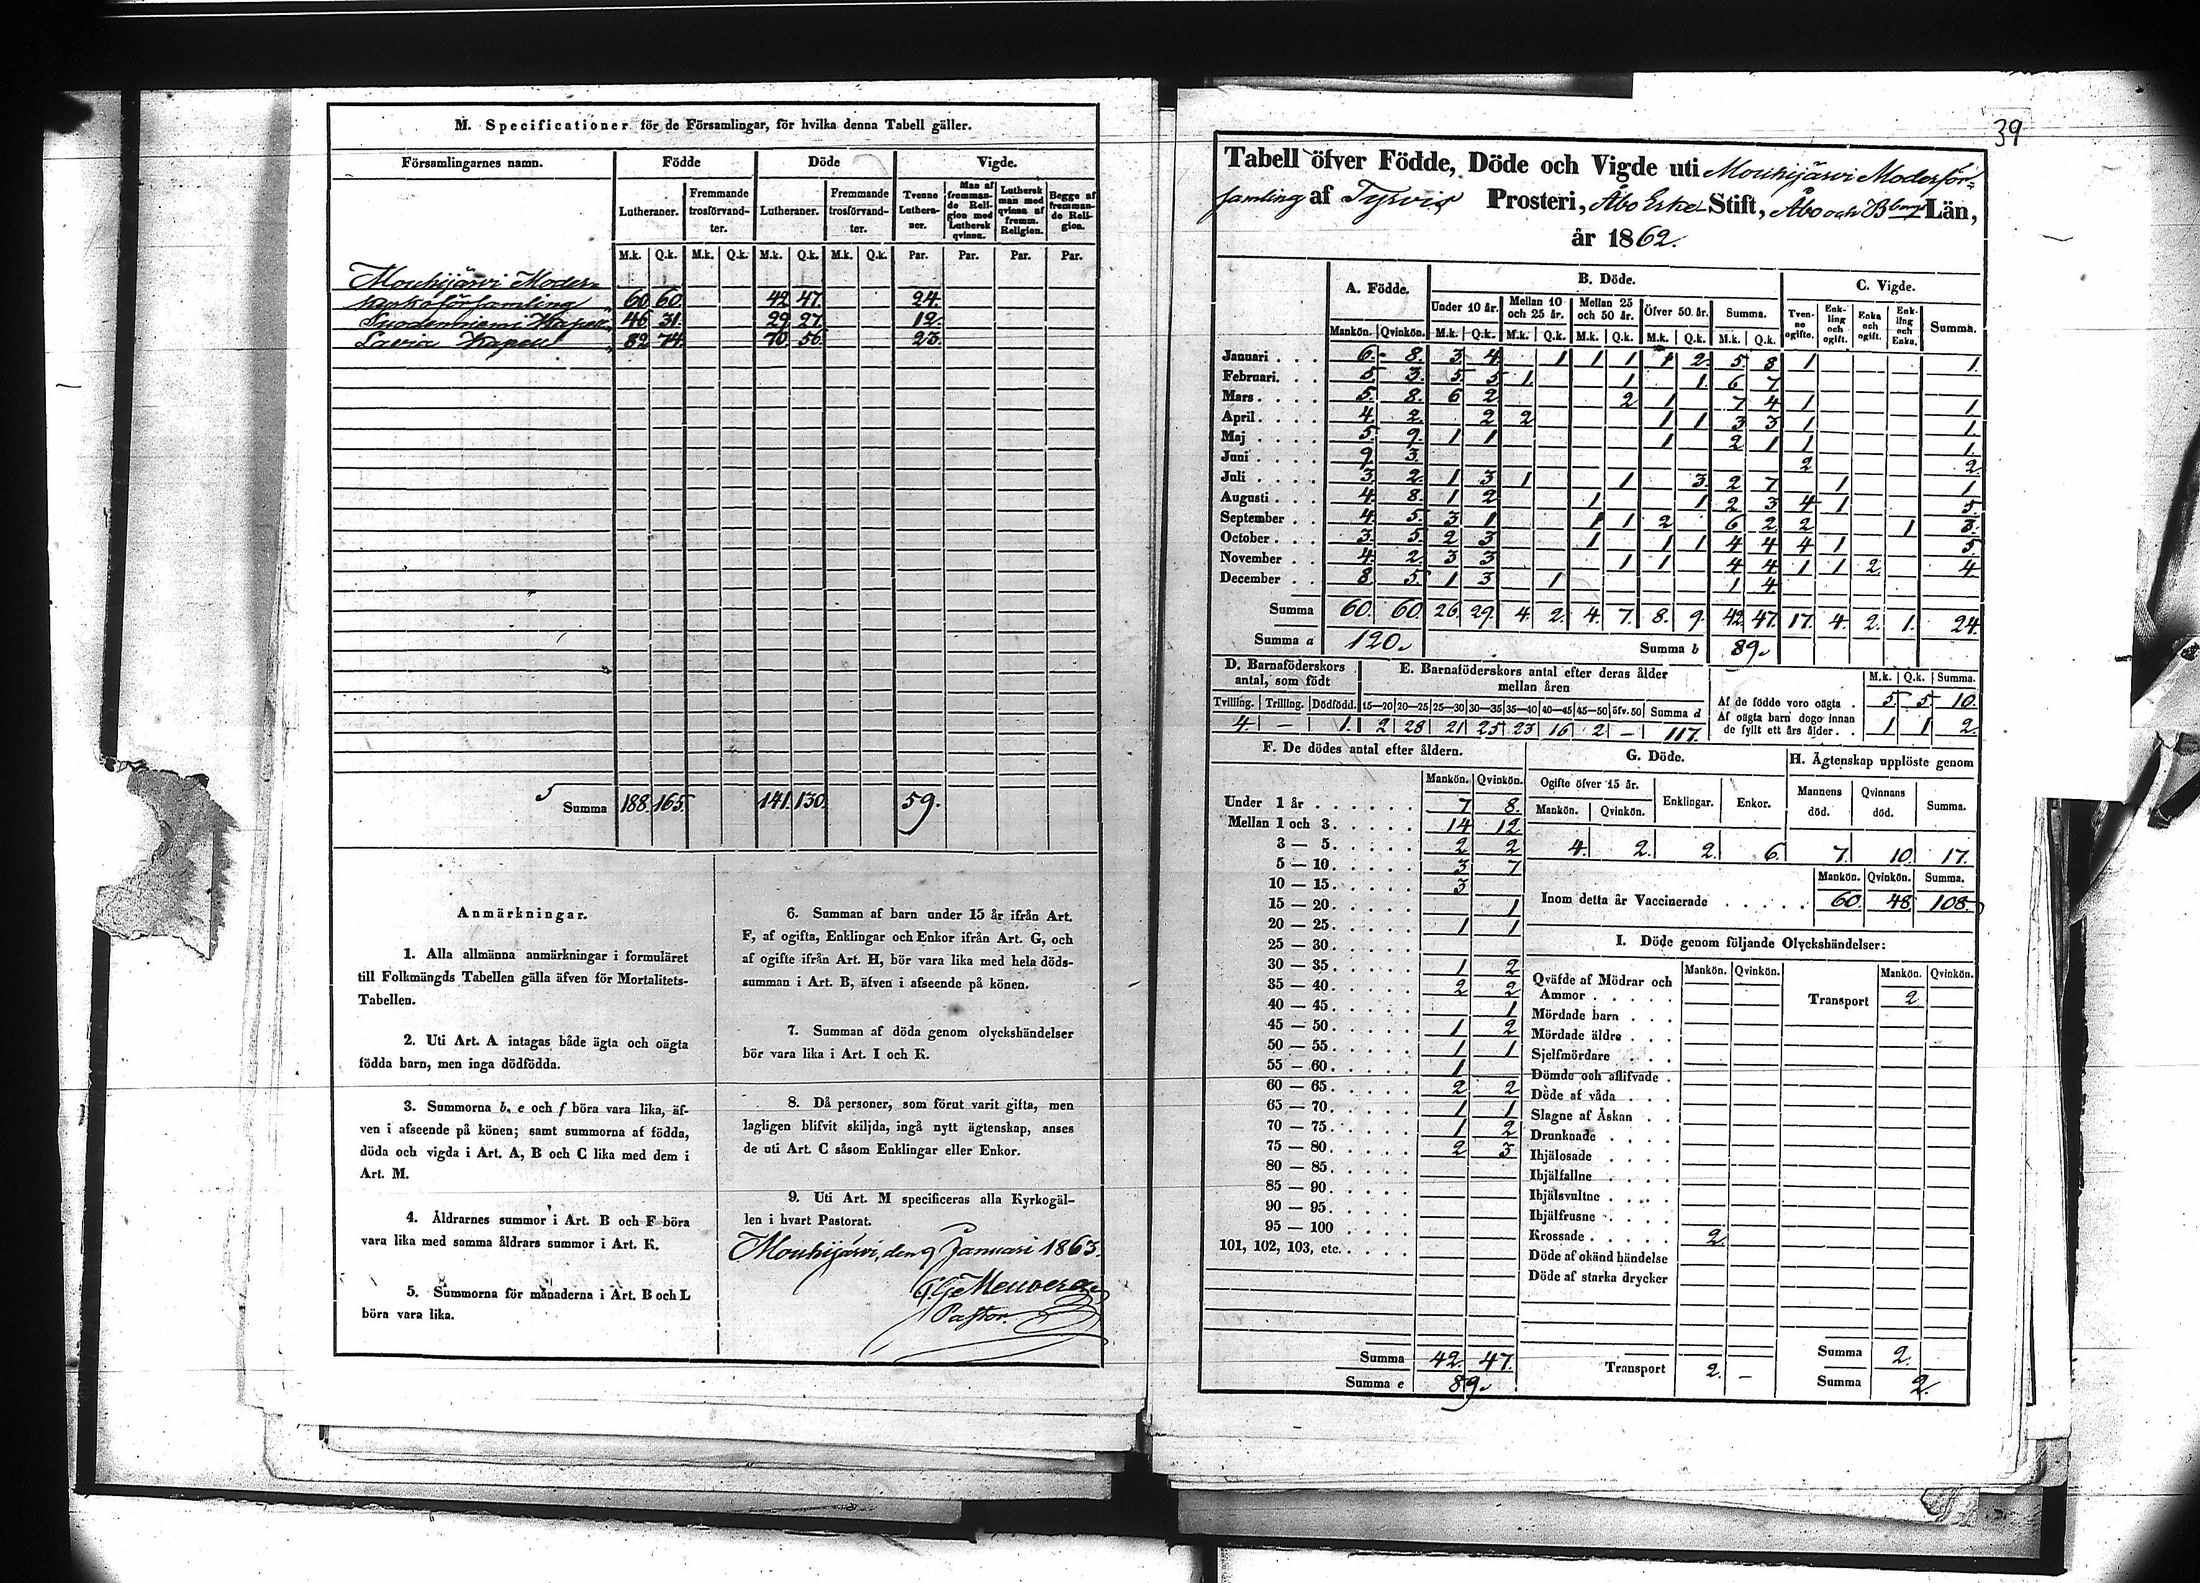 M. Specificationer för de Församlingar, för hvilka denna Tabell gäller.
Församlingarnes namn. Födde Döde Vigde.
Lutheraner. Fremmande trosförvandter. Lutheraner. Fremmande trosförvandter. Tvenne Lutheraner. Man af fremmande Religion med Luthersk qvinna. Luthersk man med qvinna af fremm. Religion. Begge af fremmande Religion.
M.k. Q.k. M.k. Q.k. M.k. Q.k. M.k. Q.k. Par. Par. Par. Par.
Mouhijärvi Moder-
kyrkoförsamling 60 60 42 47 24.
Suodenniemi Kapell 46 31. 29 27. 12.
Lavia Kapell 82 74. 70 56 23.
5 Summa 188. 165. 141. 130. 59.
Anmärkningar.
1. Alla allmänna anmärkningar i formuläret
till Folkmängds Tabellen gälla äfven för Mortalitets-
Tabellen.
2. Uti Art. A intagas både ägta och oägta
födda barn, men inga dödfödda.
3. Summorna b, e och f böra vara lika, äf-
ven i afseende på könen; samt summorna af födda,
döda och vigda i Art. A, B och C lika med dem i
Art. M.
4. Åldrarnes summor i Art. B och F böra
vara lika med samma åldrars summor i Art. K.
5. Summorna för månaderna i Art. B och L
böra vara lika.
6. Summan af barn under 15 år ifrån Art.
F, af ogifta, Enklingar och Enkor ifrån Art. G, och
af ogifte ifrån Art. H, bör vara lika med hela döds-
summan i Art. B, äfven i afseende på könen.
7. Summan af döda genom olyckshändelser
bör vara lika i Art. I och K.
8. Då personer, som förut varit gifta, men
lagligen blifvit skiljda, ingå nytt ägtenskap, anses
de uti Art. C såsom Enklingar eller Enkor.
9. Uti Art. M specificeras alla Kyrkogäl-
len i hvart Pastorat.
Mouhijärvi, den 9 Januari 1863.
Pastor.
39
Tabell öfver Födde, Döde och Vigde uti Mouhijärvi Moderför-
samling af Tyrvis Prosteri, Åbo Erke Stift, Åbo och Bborgs Län,
år 1862.
A. Födde. B. Döde. C. Vigde.
Under 10 år. Mellan 10 och 25 år. Mellan 25 och 50 år. Öfver 50 år. Summa. Tvenne ogifte. Enkling och ogift. Enka och ogift. Enkling och Enka. Summa.
Mankön. Qvinkön. M.k. Q.k. M.k. Q.k. M.k. Q.k. M.k. Q.k. M.k. Q.k.
Januari 6. 8. 3 4 1 1 1 1 2. 5. 8 1 1.
Februari 5 3. 5. 5 1. 1 1. 6 7
Mars 5. 8. 6 2 2 1 7 4 1 1
April 4. 2 2 2 1 1 3 3 1 1.
Maj 5 9. 1 1 1 2 1 1 1.
Juni 9. 3. 2 2.
Juli 3 2. 1 3 1 1 3. 2 7 1 1
Augusti 4. 8. 1 2 1 1 2 3 4 1 5.
September 4 5. 3 1 1 1 2 6 2 2 1 3.
October 3 5 2 3 1 1 1 4 4 4 1 5
November 4 2. 3 3 1 1 4 4 1 1 2. 4
December 8. 5. 1 3 1 1 4
Summa 60. 60. 26. 29. 4. 2. 4. 7. 8. 9. 42 47. 17. 4. 2. 1. 24
Summa a 120. Summa b 89.
D. Barnaföderskors antal, som födt
Tvilling. Trilling. Dödfödd.
4. — 1.
E. Barnaföderskors antal efter deras ålder mellan åren
15—20 20—25 25—30 30—35 35—40 40—45 45—50 öfv. 50 Summa d
2 28 21 25 23 16 2 — 117.
M.k. Q.k. Summa.
Af de födde voro oägta 5 5 10.
Af oägta barn dogo innan
de fyllt ett års ålder 1 1 2.
F. De dödes antal efter åldern.
Mankön. Qvinkön.
Under 1 år 7 8.
Mellan 1 och 3 14 12
3 — 5 2 2
5 — 10 3 7
10 — 15 3
15 — 20 1
20 — 25 1 1
25 — 30
30 — 35 1 2
35 — 40 2 2
40 — 45 1
45 — 50 1 2
50 — 55 1 1
55 — 60 1
60 — 65 2 2
65 — 70 1 1
70 — 75 1 2
75 — 80 2 3
80 — 85
85 — 90
90 — 95
95 — 100
101, 102, 103, etc.
Summa 42. 47.
Summa e 89.
G. Döde.
Ogifte öfver 15 år. Enklingar. Enkor.
Mankön. Qvinkön.
4. 2. 2. 6.
H. Ägtenskap upplöste genom
Mannens död. Qvinnans död. Summa.
7. 10. 17.
Mankön. Qvinkön. Summa.
Inom detta år Vaccinerade 60. 48 108.
I. Döde genom följande Olyckshändelser:
Mankön. Qvinkön. Mankön. Qvinkön.
Qväfde af Mödrar och
Ammor
Mördade barn
Mördade äldre
Sjelfmördare
Dömde och aflifvade
Döde af våda
Slagne af Åskan
Drunknade
Ihjälosade
Ihjälfallne
Ihjälsvultne
Ihjälfrusne
Krossade 2.
Döde af okänd händelse
Döde af starka drycker
Transport 2. —
Transport 2.
Summa 2.
Summa 2.